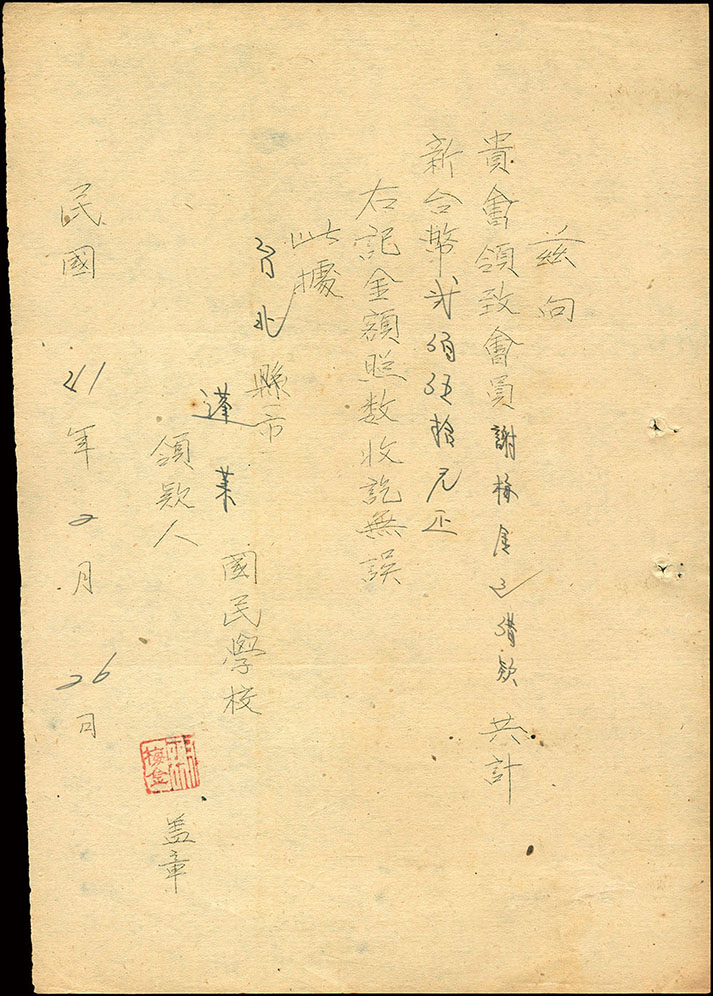 茲向
貴會領致會員謝梅金之借款 共計
新台幣弍佰伍拾元正
右記金額照数收訖無誤
此據
台北縣市
蓬萊 國民學校
領款人 盖章
梅金
民國 41年2月26日